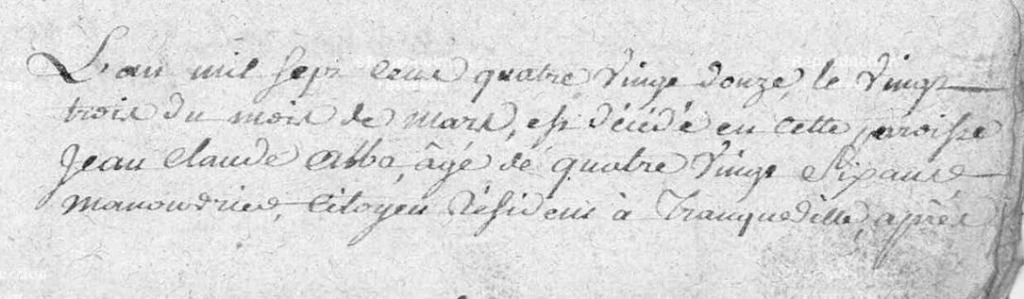 L'an mil sept cent quatre vingt douze, le vingt
trois du mois de mars, est décédé en cette paroisse
Jean Claude Abbo, âgé de quatre vingt six ans,
manouvrier, citoyen résident à Tranqueville, après